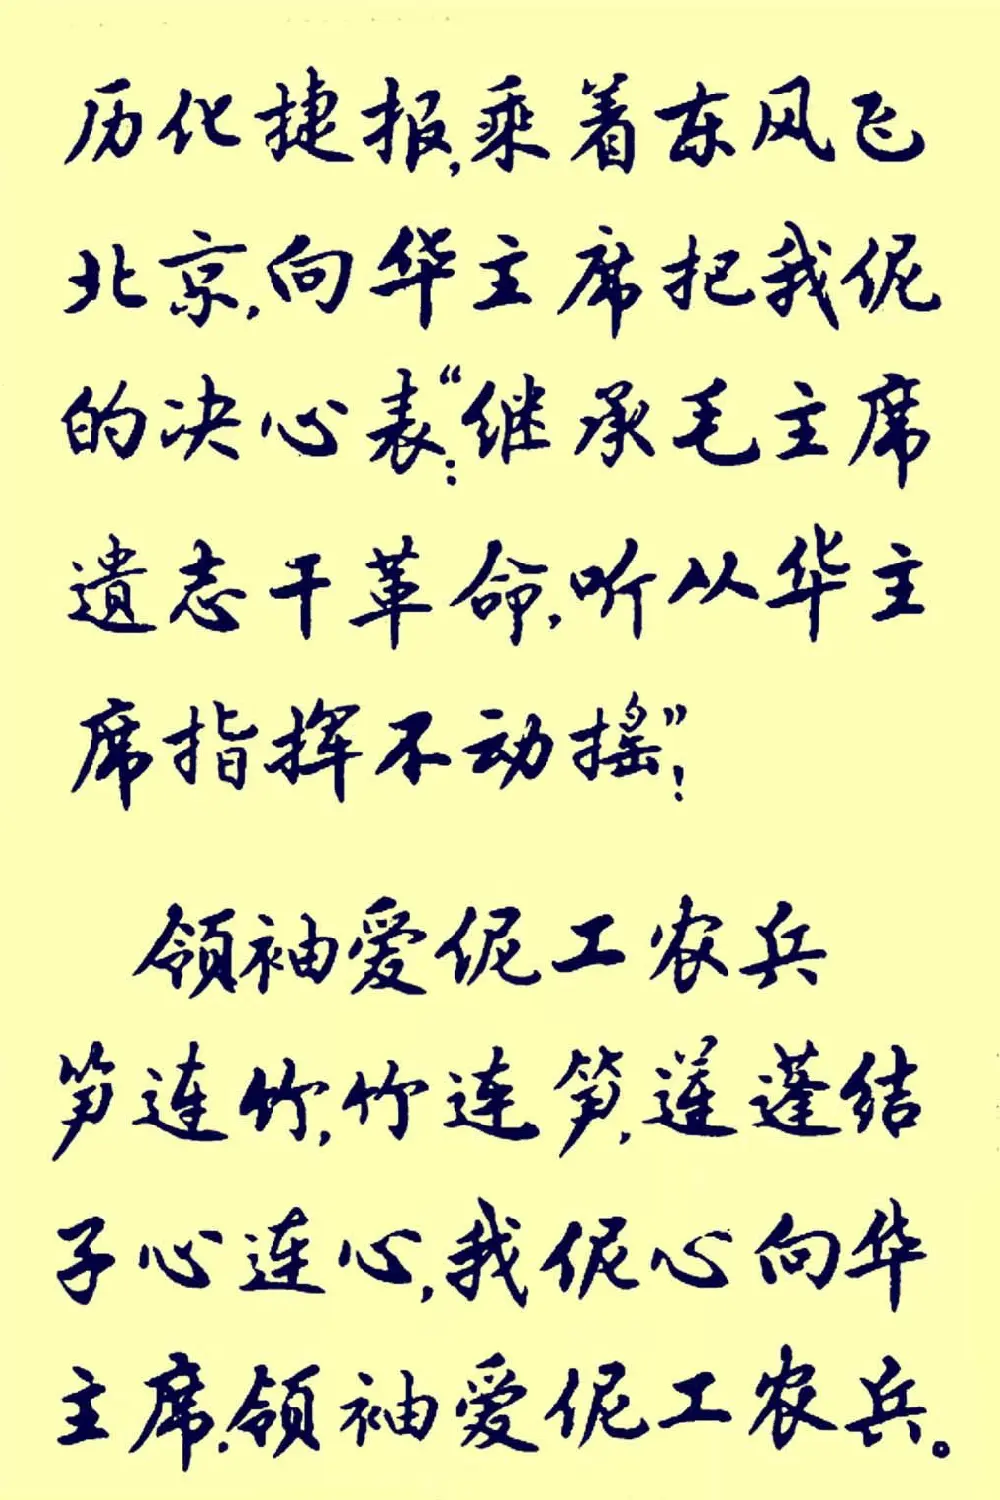 历化捷报,乘着东风飞
北京,向华主席把我伲
的决心表:“继承毛主席
遗志干革命,听从华主
席指挥不动摇”!
领袖爱伲工农兵
笋连竹,竹连笋,莲蓬结
子心连心,我伲心向华
主席,领袖爱伲工农兵。